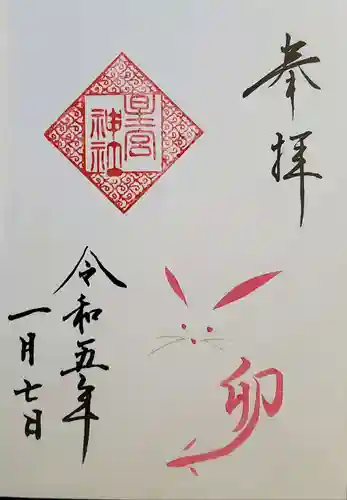 奉拝
皇宮
神社
卯
令和五年
一月七日